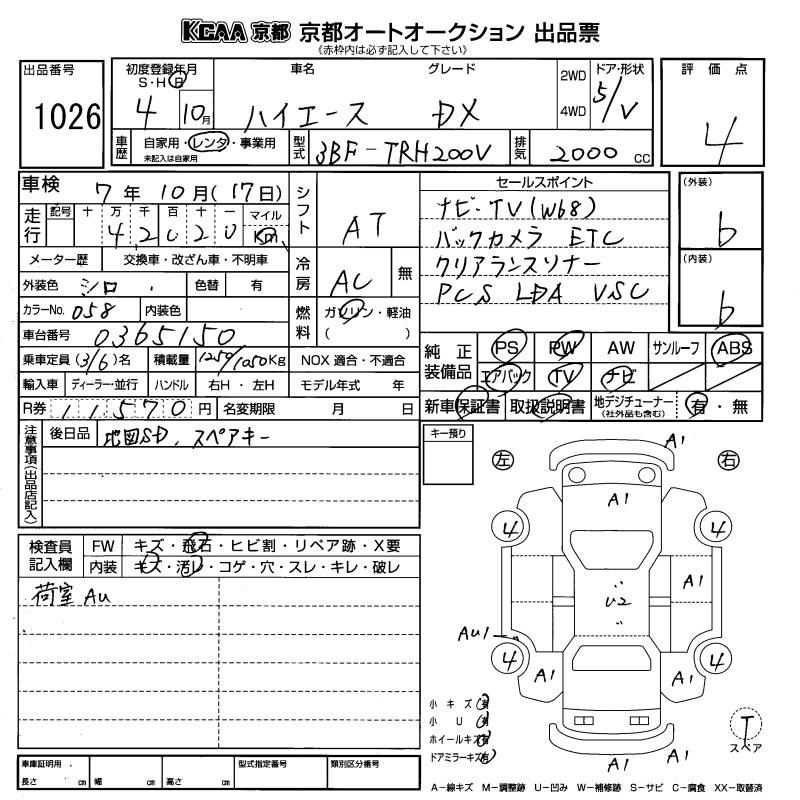 KCAA 京都 京都オートオークション 出品票
《赤枠内は必ず記入して下さい》
出品番号 1026
初度登録年月 S・H・R 4年 10月
車名 ハイエース
グレード DX
2WD 4WD
ドア・形状 5/V
評価点 4
車歴 自家用・レンタ・事業用
未記入は自家用
型式 3BF-TRH200V
排気 2000 CC
車検 7年 10月(17日)
シフト AT
走行 記号 十 万 千 百 十 一 マイル
42020 Km
メーター歴 交換車・改ざん車・不明車
冷房 AC 無
外装色 シロ 色替 有
カラーNo. 058 内装色
燃料 ガソリン・軽油
( )
車台番号 0365150
乗車定員 (3/6)名 積載量 1250/1050Kg NOX 適合・不適合
輸入車 ディーラー・並行 ハンドル 右H・左H モデル年式 年
R券 11570円 名変期限 月 日
セールスポイント
ナビ・TV(W68)
バックカメラ ETC
クリアランスソナー
PCS LDA VSC
(外装) b
(内装) b
純正装備品 PS PW AW サンルーフ ABS
エアバック TV ナビ
新車保証書 取扱説明書 地デジチューナー(社外品も含む) 有・無
注意事項(出品店記入)
後日品 地図SD、スペアキー
キー預り
左 右
A1
A1
4 4
A1
U2
AU1
4 4
A1 A1
A1 A1
検査員記入欄
FW キズ・飛石・ヒビ割・リペア跡・X要
内装 キズ・汚レ・コゲ・穴・スレ・キレ・破レ
荷室 AU
小キズ(有)
小 U(有)
ホイールキズ(有)
ドアミラーキズ(有)
T
スペア
車庫証明用 長さ cm 幅 cm 高さ cm
型式指定番号
類別区分番号
A-線キズ M-調整跡 U-凹み W-補修跡 S-サビ C-腐食 XX-取替済